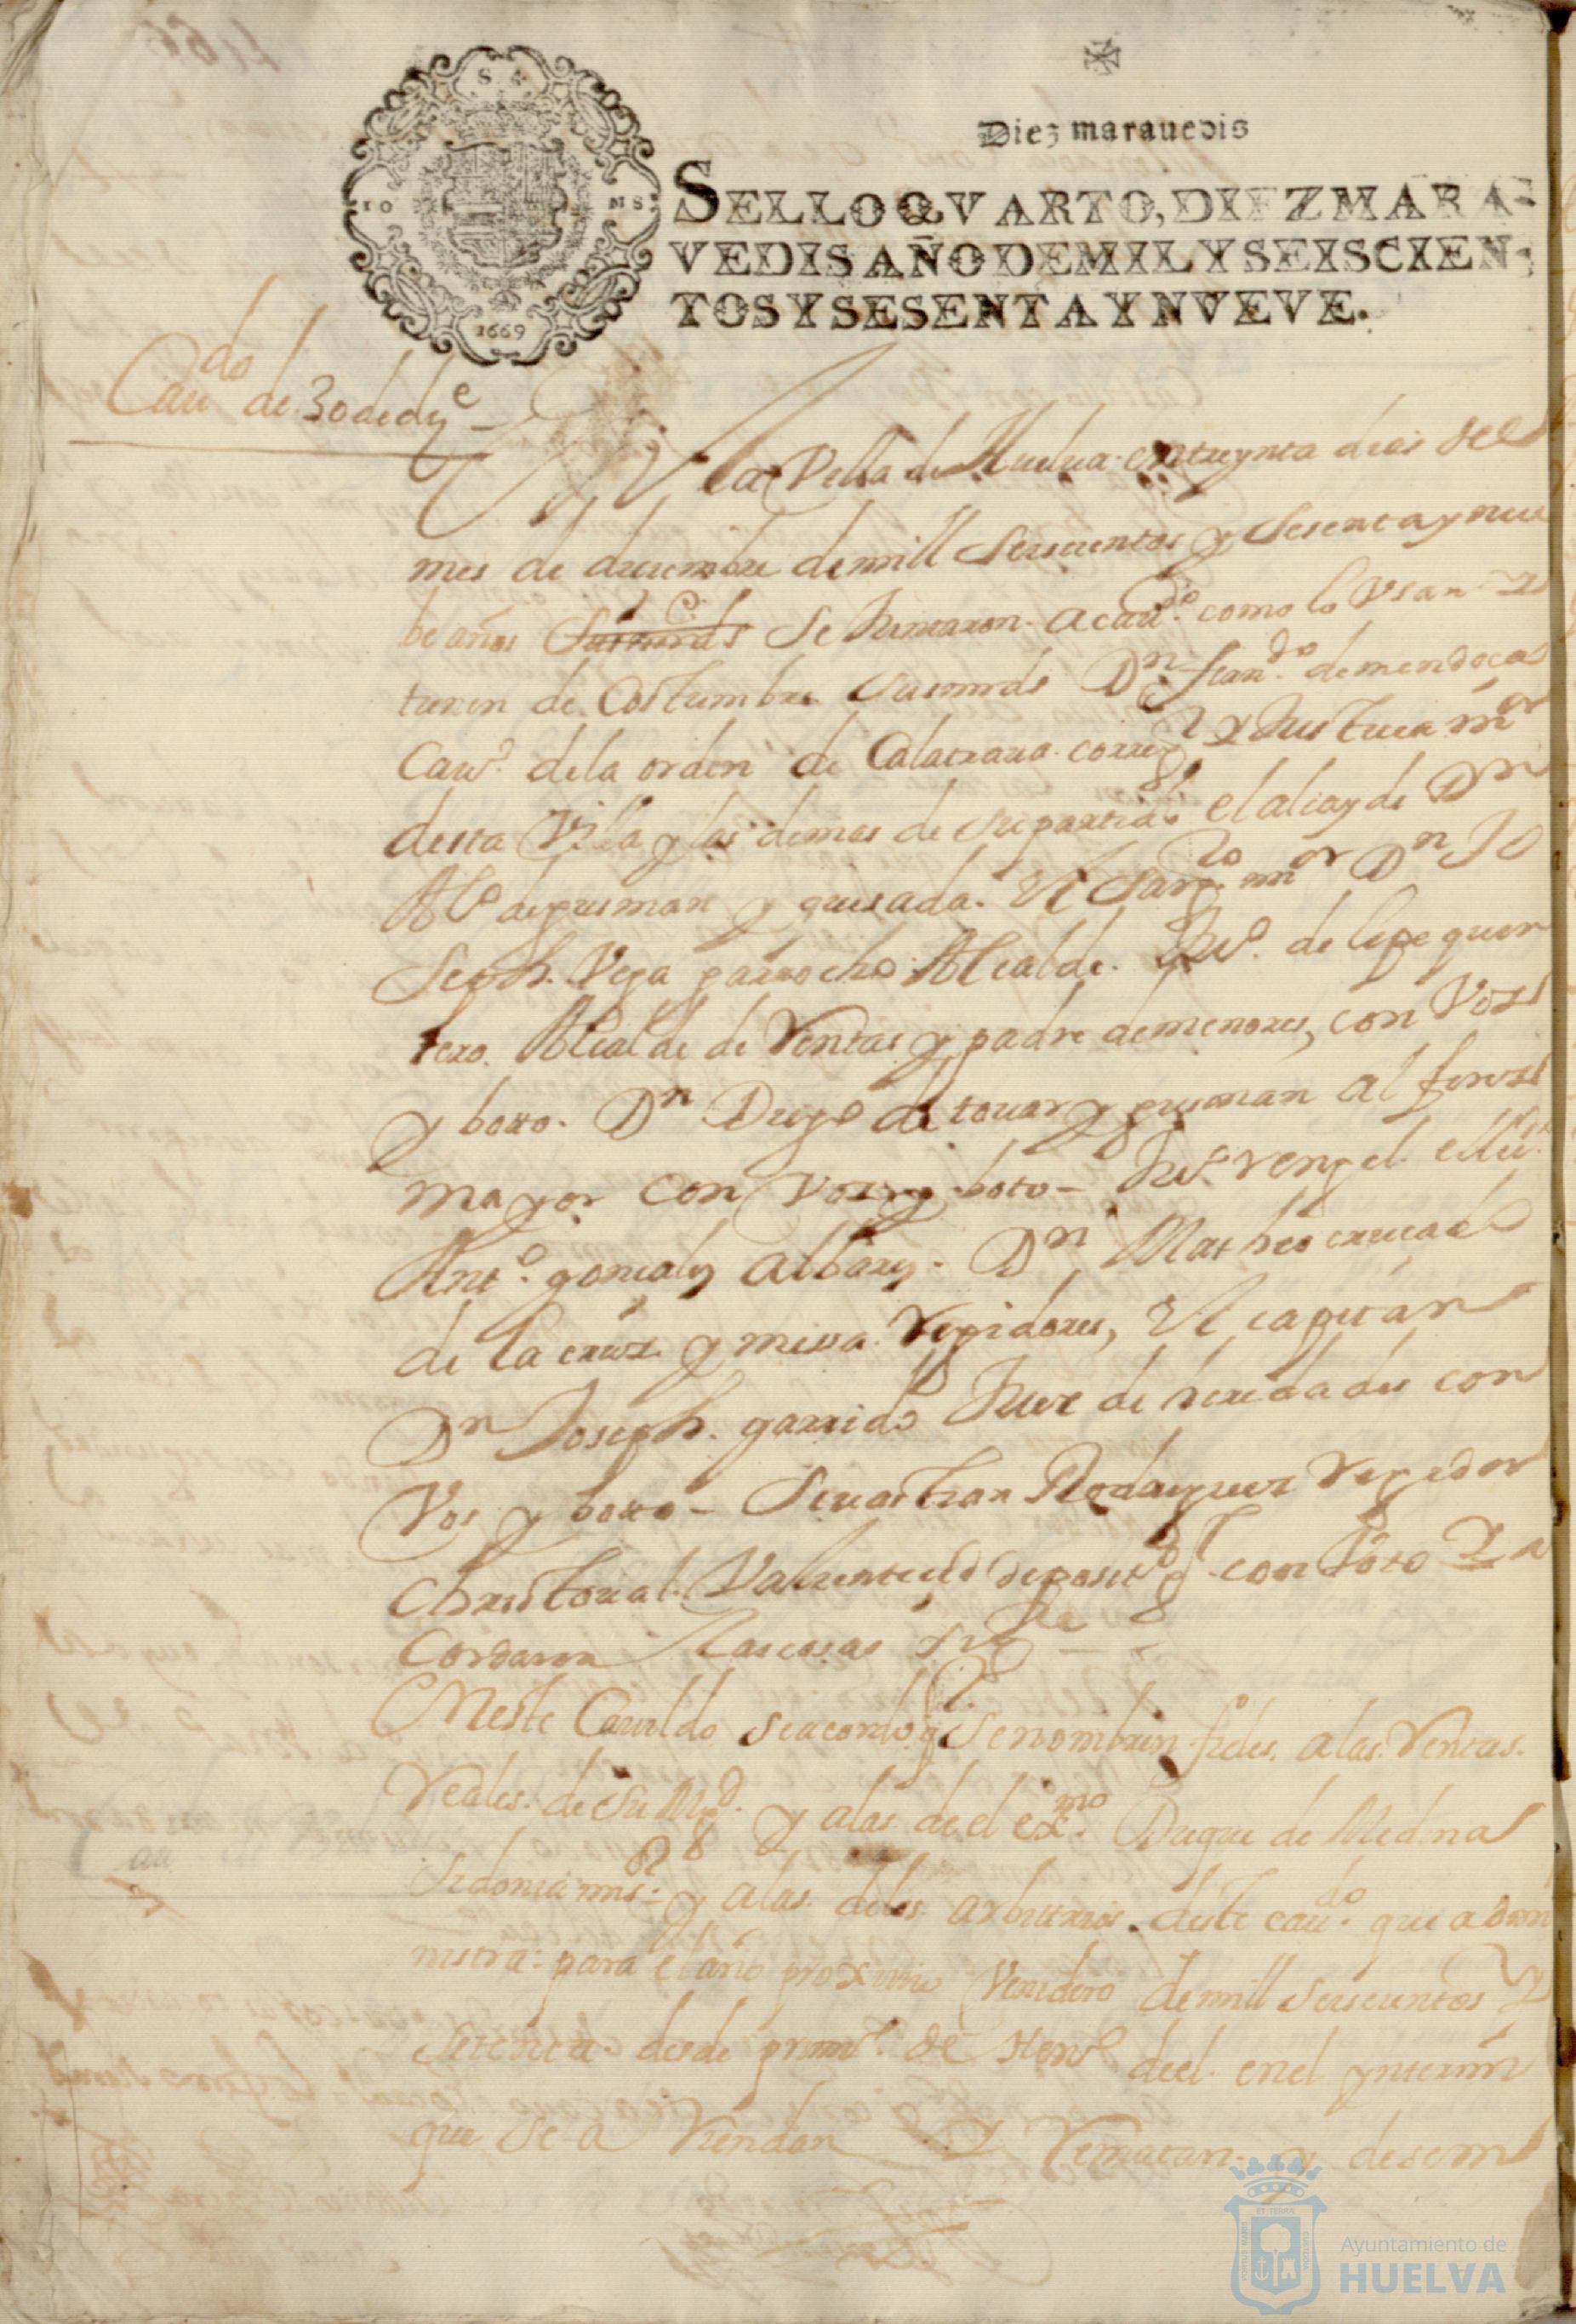 Diez marauedis
SELLO QVARTO, DIEZ MARA-
VEDIS AÑO DE MIL Y SEISCIEN-
TOS Y SESENTA Y NVEVE.
S 4
10 MS
1669
Caudo de 30 de dye
la Villa de Huelua en treynta dias del
mes de diciembre de mill Seiscientos y Sesenta y nue
be años Se Juntaron a caudo como lo Vsan y
tienen de Costumbre Sus mrds Dn ferando de mendoça
Cauo de la orden de Calatraua correxr y Justicia mor
desta Villa y las demas de su partido el alcayde Dn
Alo de gusman y quesada. El Sargto mor Dn Jo
Seph. Vega parrocho Alcalde. Juo. de lepe quin
tero. Alcalde de Ventas y padre de menores, con Voz
y botto. Dn Diego de touar y gusman al feres
mayor con Voz y boto - Juo. rengel
Anto. gonçales albares. Dn Matheo
de la cruz y missa Regidores, El capitan
Dn Joseph. garrido Juez de heredades con
Vos y botto - Seuastian Rodrigues Regidor
Christoual Valiente deposito gl con Voto y a
Cordaron las cosas sigtes
Neste Cauildo se acordo q Se nombren fieles. a las Rentas.
Reales. de Su Magd. y a las de el exmo. Duque de Medina
Sidonia mi Sr. y a las de los arbitrios deste caudo. que admi
nistra: para el año proximo Venidero de mill Seiscientos y
Setenta desde primo. de Heno. de el. en el ynterim
que se a Riendan y Rematan y
Ayuntamiento de
HUELVA